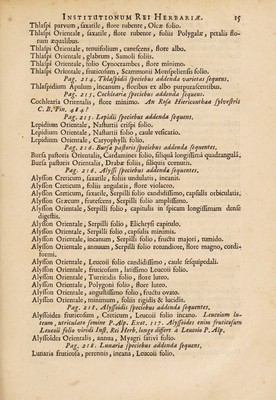 INSTITUTIONUM REI HERBARIÆ. 15
Thlaspi parvum, saxatile, flore rubente, Oleæ folio.
Thlaspi Orientale, saxatile, flore rubente, foliis Polygalæ, petalis flo-
rum æqualibus.
Thlaspi Orientale, tenuifolium, canescens, flore albo.
Thlaspi Orientale, glabrum, Samoli foliis.
Thlaspi Orientale, folio Cynocrambes, flore minimo.
Thlaspi Orientale, fruticosum, Scammonii Monspeliensis folio.
Pag. 214. Thlaspidii speciebus addenda varietas sequens.
Thlaspidium Apulum, incanum, floribus ex albo purpurascentibus.
Pag. 215. Cochlearia speciebus addenda sequens.
Cochlearia Orientalis, flore minimo. An Rosa Hiericonthea sylvestris
C. B. Pin. 484?
Pag. 215. Lepidii speciebus addenda sequentes.
Lepidium Orientale, Nasturtii crispi folio.
Lepidium Orientale, Nasturtii folio, caule vesicario.
Lepidium Orientale, Caryophylli folio.
Pag. 216. Bursæ pastoris speciebus addenda sequentes.
Bursa pastoris Orientalis, Cardamines folio, siliquâ longissimâ quadrangulâ,
Bursa pastoris Orientalis, Drabæ foliis, siliquis cornutis.
Pag. 216. Alyssi speciebus addenda sequentes.
Alysson Creticum, saxatile, foliis undulatis, incanis.
Alysson Creticum, foliis angulatis, flore violaceo.
Alysson Creticum, saxatile, Serpilli folio candidissimo, capsulis orbiculatis.
Alysson Græcum, frutescens, Serpilli folio amplissimo.
Alysson Orientale, Serpilli folio, capitulis in spicam longissimam densè
digestis.
Alysson Orientale, Serpilli folio, Elichrysi capitulo.
Alysson Orientale, Serpilli folio, capsulis minimis.
Alysson Orientale, incanum, Serpilli folio, fructu majori, tumido.
Alysson Orientale, annuum, Serpilli folio rotundiore, flore magno, condi-
formi.
Alysson Orientale, Leucoii folio candidissimo, caule sesquipedali.
Alysson Orientale, fruticosum, latissimo Leucoii folio.
Alysson Orientale, Turritidis folio, flore luteo.
Alysson Orientale, Polygoni folio, flore luteo.
Alysson Orientale, angustissimo folio, fructu ovato.
Alysson Orientale, minimum, foliis rigidis & lucidis.
Pag. 218. Alyssoidis speciebus addenda sequentes.
Alyssoides fruticosum, Creticum, Leucoii folio incano. Leucoium lu-
teum, utriculato semine P. Alp. Exot. 117. Alyssoides enim fruticosum
Leucoii folio viridi Inst. Rei Herb, longe differt à Leucoio P. Alp.
Alyssoides Orientalis, annua, Myagri sativi folio.
Pag. 218. Lunariæ speciebus addenda sequens.
Lunaria fruticosa, perennis, incana, Leucoii folio.